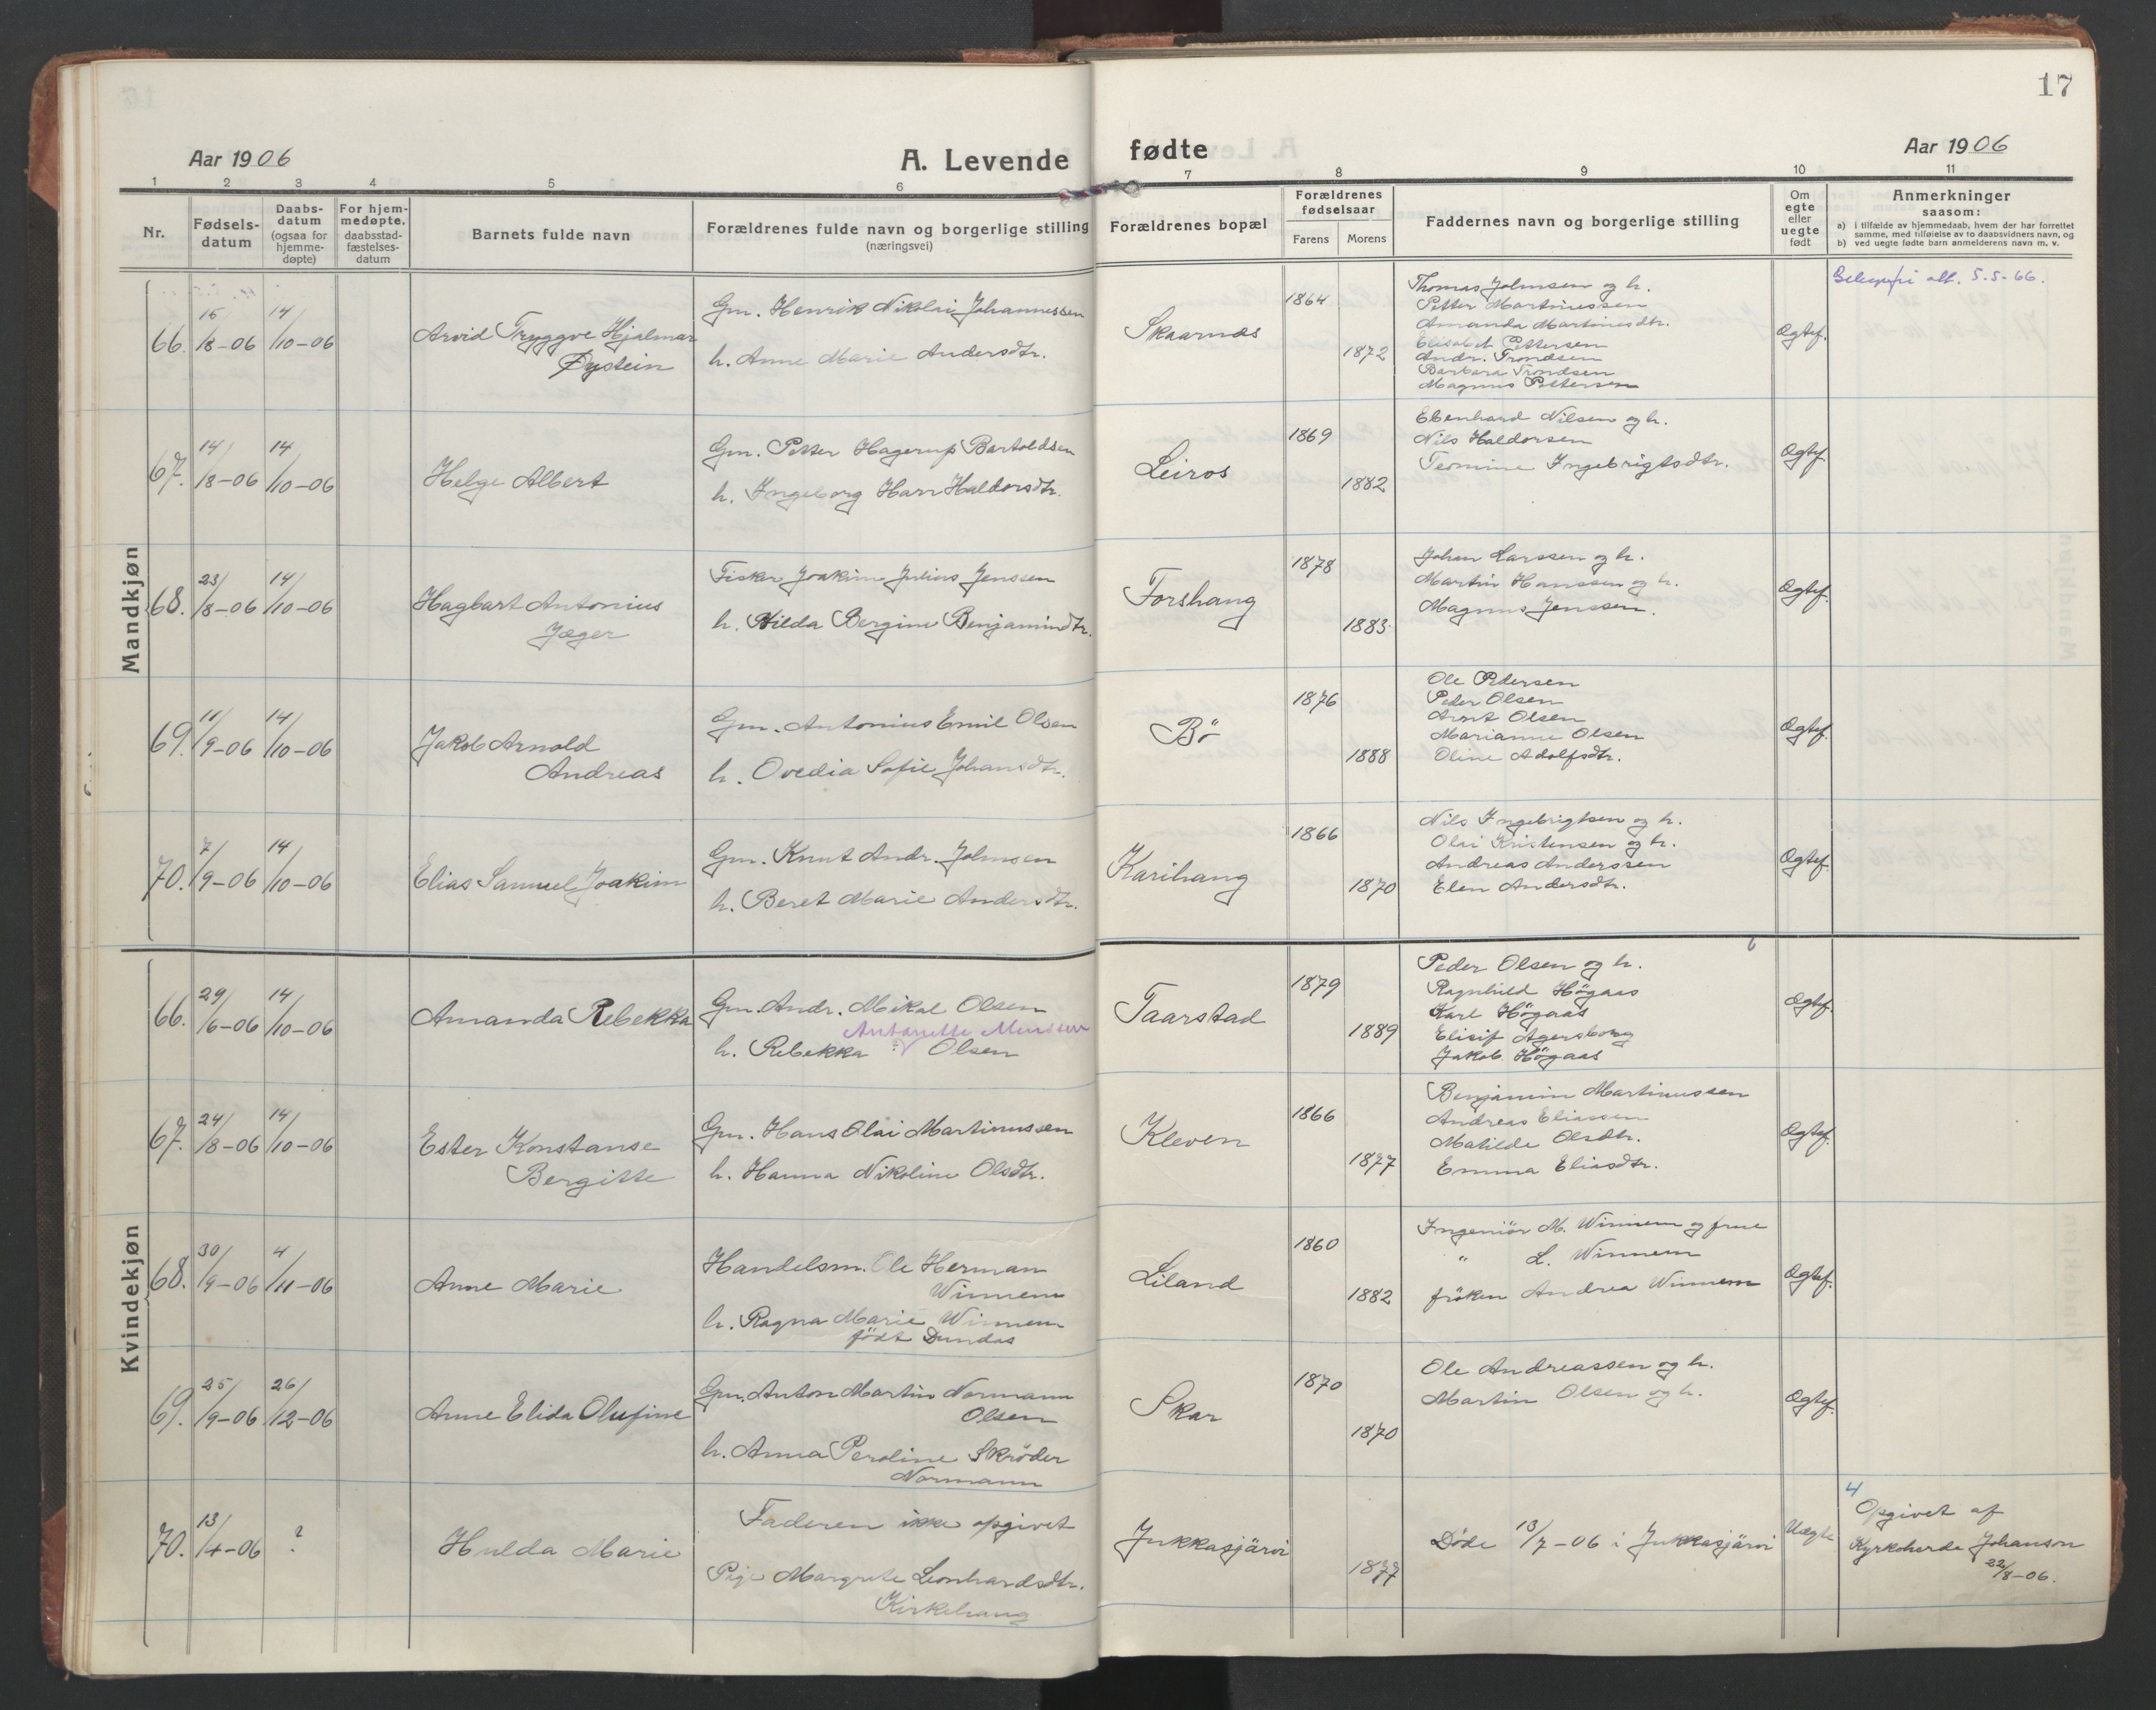 17
Aar 1906
A. Levende fødte
Aar 1906
1 2 3 4 5 6 7 8 9 10 11
Nr.
Fødsels-
datum
Daabs-
datum
(ogsaa for
hjemme-
døpte)
For hjem-
medøpte,
daabsstad-
fæstelses-
datum
Barnets fulde navn
Forældrenes fulde navn og borgerlige stilling
(næringsvei)
Forældrenes bopæl
Forældrenes
fødselsaar
Farens Morens
Faddernes navn og borgerlige stilling
Om
egte
eller
uegte
født
Anmerkninger
saasom:
a) i tilfælde av hjemmedaab, hvem der har forrettet
samme, med tilføielse av to daabsvidners navn, og
b) ved uegte fødte barn anmelderens navn m. v.
Mandkjøn
66. 15/8-06 14/10-06
Arvid Tryggve Hjalmar
Øystein
Gm. Henrik Nikolai Johannessen
h. Anne Marie Andersdtr.
Skaarnes
1864
1872
Thomas Johnsen og h.
Petter Martinussen
Amanda Martinesdtr.
Elisabet Pettersen
Andr. Trondsen
Barbara Trondsen
Magnus Pettersen
Ægtef.
att. 5.5-66.
67. 14/8-06 14/10-06
Helge Albert
Gm. Petter Hagerup Bartoldsen
h. Ingeborg Harr Haldorsdtr.
Leiros
1869
1882
Ebenhard Nilsen og h.
Nils Haldorsen
Termine Ingebrigtsdtr.
Ægtf.
68. 23/8-06 14/10-06
Hagbart Antonius
Jæger
Fisker Joakim Julius Jenssen
h. Hilda Bergine Benjamindtr.
Forshang
1878
1883
Johan Larssen og h.
Martin Hanssen og h.
Magnus Jenssen.
Ægtef.
69. 11/9-06 14/10-06
Jakob Arnold
Andreas
Gm. Antonius Emil Olsen
h. Ovedia Sofie Johansdtr.
Bö
1876
1888
Ole Pedersen
Peder Olsen
Arnt Olsen
Marianne Olsen
Oline Adolfsdtr.
Ægtef.
70. 7/9-06 14/10-06
Elias Samuel Joakim
Gm. Knut Andr. Johnsen
h. Beret Marie Andersdtr.
Karihang
1866
1870
Nils Ingebrigtsen og h.
Olai Kristensen og h.
Andreas Anderssen
Elen Andersdtr.
Ægtef.
Kvindekjøn
6
66. 29/6-06 14/10-06
Amanda Rebekka
Gm. Andr. Mikal Olsen
Antonette
h. Rebekka Olsen
Taarstad
1879
1889
Peder Olsen og h.
Ragnhild Högaas
Karl Högaas
Elisif Agersborg
Jakob Högaas
Ægtef.
67. 24/8-06 14/10-06
Ester Konstanse
Bergitte
Gm. Hans Olai Martinussen
h. Hanna Nikoline Olsdtr.
Kleven
1866
1877
Benjamin Martinussen
Andreas Eliassen
Matilde Olsdtr.
Emma Eliasdtr.
Ægtef.
68. 30/9-06 4/11-06
Anne Marie
Handelsm. Ole Herman
Winnem
h. Ragna Marie Winnem
födt Dundas
Liland
1860
1882
Ingeniör M. Winnem og frue
" L. Winnem
fröken Andrea Winnem
Ægtef.
69. 25/9-06 26/12-06
Anne Elida Olufine
Gm. Anton Martin Normann
Olsen
h. Anna Peroline Skröder
Normann
Skar
1870
1870
Ole Andreassen og h.
Martin Olsen og h.
Ægtef.
70. 13/4-06 ?
Hulda Marie
Faderen ikke opgivet
Pige Margrete Leonhardsdtr.
Kirkehaug
Jukkasjärvi
1877
Døde 13/7-06 i Jukkasjärvi
Uægte
4
Opgivet af
Kyrkoherde Johanson
22/8-06.